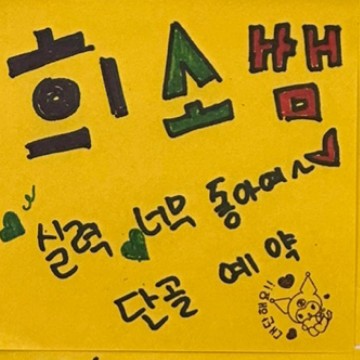 희소쌤
실력 너무 동아여~
단골 예약
대단해요!!